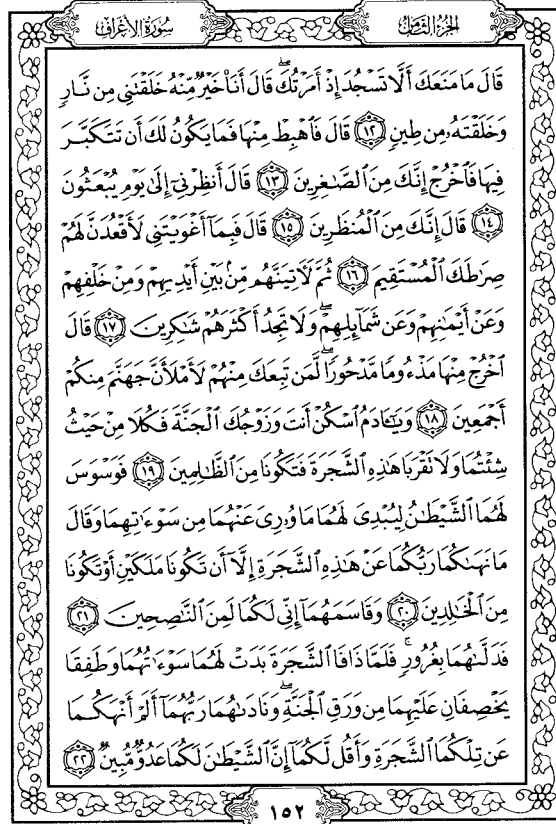 سورة الأعراف
الجزء الثامن
قَالَ مَا مَنَعَكَ أَلَّا تَسْجُدَ إِذْ أَمَرْتُكَ ۖ قَالَ أَنَا۠ خَيْرٌ مِّنْهُ خَلَقْتَنِى مِن نَّارٍ
وَخَلَقْتَهُۥ مِن طِينٍ ١٢ قَالَ فَٱهْبِطْ مِنْهَا فَمَا يَكُونُ لَكَ أَن تَتَكَبَّرَ
فِيهَا فَٱخْرُجْ إِنَّكَ مِنَ ٱلصَّٰغِرِينَ ١٣ قَالَ أَنظِرْنِىٓ إِلَىٰ يَوْمِ يُبْعَثُونَ
١٤ قَالَ إِنَّكَ مِنَ ٱلْمُنظَرِينَ ١٥ قَالَ فَبِمَآ أَغْوَيْتَنِى لَأَقْعُدَنَّ لَهُمْ
صِرَٰطَكَ ٱلْمُسْتَقِيمَ ١٦ ثُمَّ لَءَاتِيَنَّهُم مِّنۢ بَيْنِ أَيْدِيهِمْ وَمِنْ خَلْفِهِمْ
وَعَنْ أَيْمَٰنِهِمْ وَعَن شَمَآئِلِهِمْ ۖ وَلَا تَجِدُ أَكْثَرَهُمْ شَٰكِرِينَ ١٧ قَالَ
ٱخْرُجْ مِنْهَا مَذْءُومًا مَّدْحُورًا ۖ لَّمَن تَبِعَكَ مِنْهُمْ لَأَمْلَأَنَّ جَهَنَّمَ مِنكُمْ
أَجْمَعِينَ ١٨ وَيَٰٓـَٔادَمُ ٱسْكُنْ أَنتَ وَزَوْجُكَ ٱلْجَنَّةَ فَكُلَا مِنْ حَيْثُ
شِئْتُمَا وَلَا تَقْرَبَا هَٰذِهِ ٱلشَّجَرَةَ فَتَكُونَا مِنَ ٱلظَّٰلِمِينَ ١٩ فَوَسْوَسَ
لَهُمَا ٱلشَّيْطَٰنُ لِيُبْدِىَ لَهُمَا مَا وُۥرِىَ عَنْهُمَا مِن سَوْءَٰتِهِمَا وَقَالَ
مَا نَهَىٰكُمَا رَبُّكُمَا عَنْ هَٰذِهِ ٱلشَّجَرَةِ إِلَّآ أَن تَكُونَا مَلَكَيْنِ أَوْ تَكُونَا
مِنَ ٱلْخَٰلِدِينَ ٢٠ وَقَاسَمَهُمَآ إِنِّى لَكُمَا لَمِنَ ٱلنَّٰصِحِينَ ٢١
فَدَلَّىٰهُمَا بِغُرُورٍ ۚ فَلَمَّا ذَاقَا ٱلشَّجَرَةَ بَدَتْ لَهُمَا سَوْءَٰتُهُمَا وَطَفِقَا
يَخْصِفَانِ عَلَيْهِمَا مِن وَرَقِ ٱلْجَنَّةِ ۖ وَنَادَىٰهُمَا رَبُّهُمَآ أَلَمْ أَنْهَكُمَا
عَن تِلْكُمَا ٱلشَّجَرَةِ وَأَقُل لَّكُمَآ إِنَّ ٱلشَّيْطَٰنَ لَكُمَا عَدُوٌّ مُّبِينٌ ٢٢
١٥٢